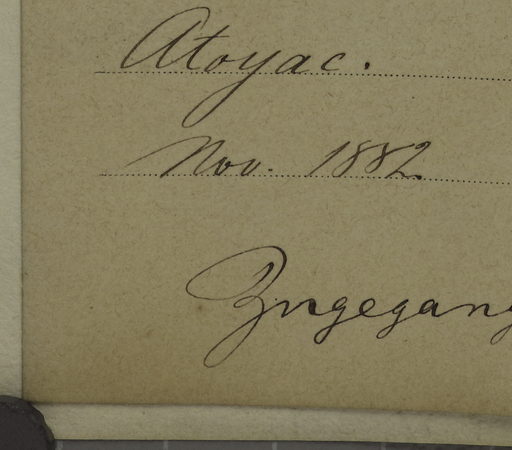 Atoyac.
Nov. 1882.
Zugegang